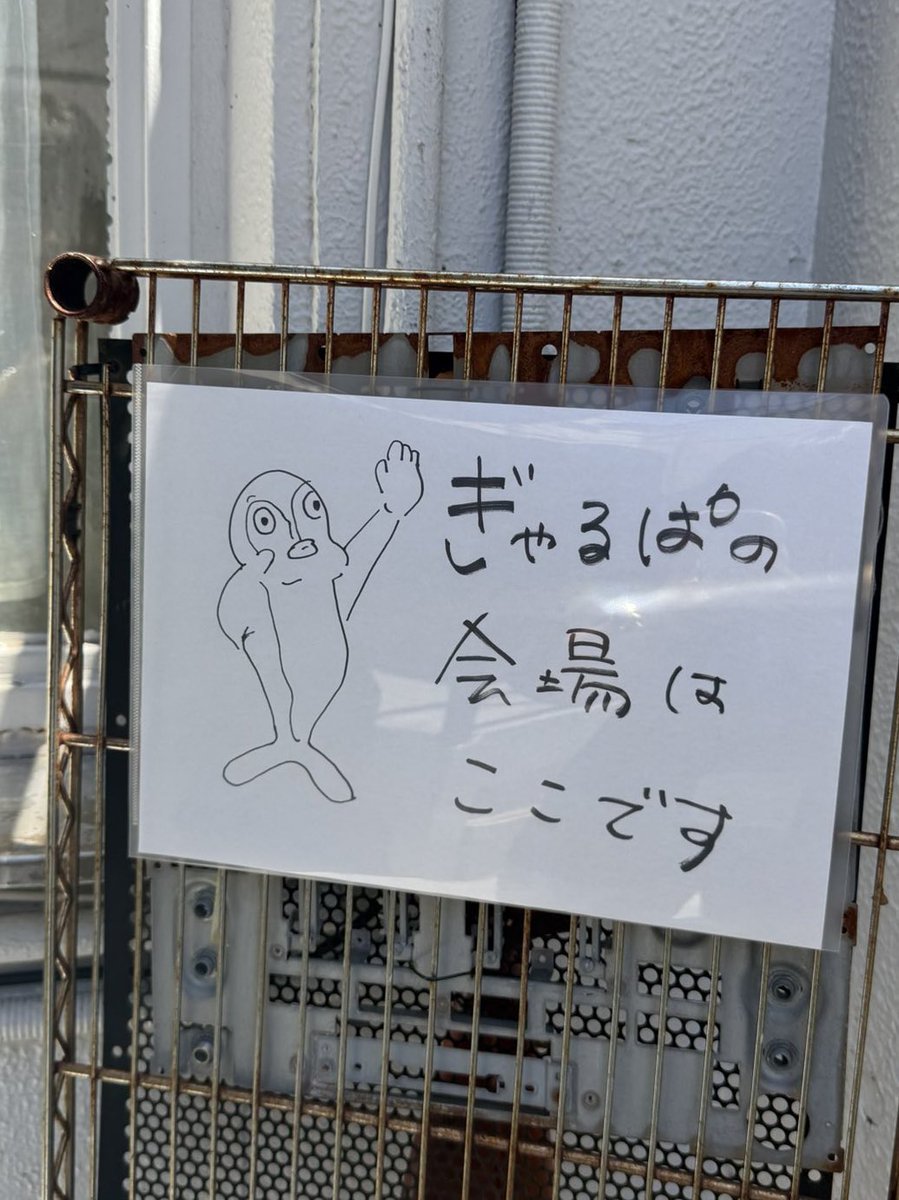 ぎゃるぱの
会場は
ここです